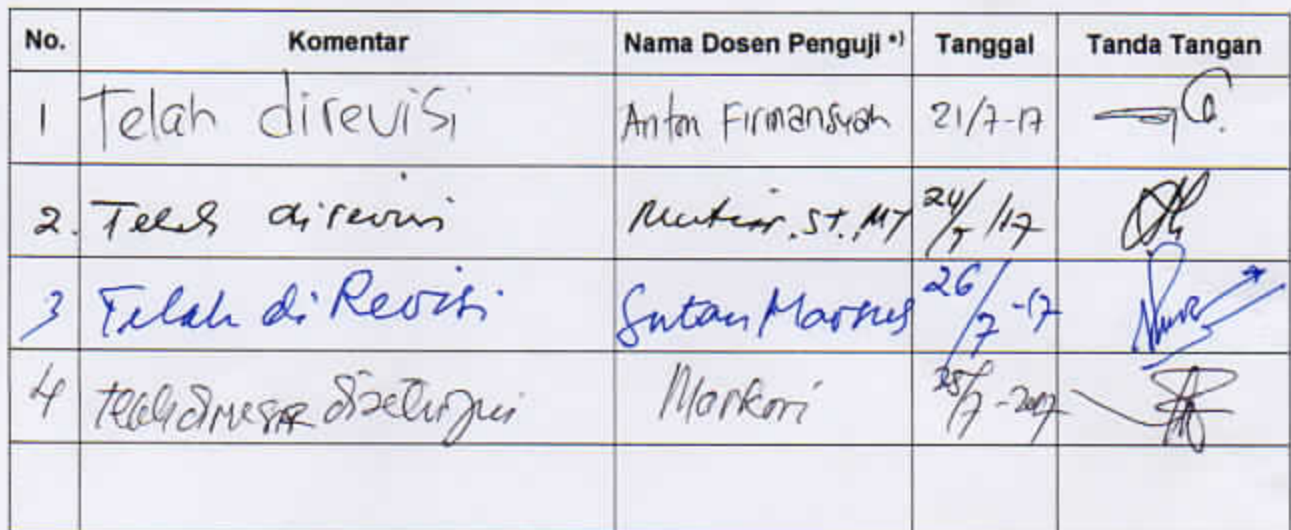 No. Komentar Nama Dosen Penguji *) Tanggal Tanda Tangan
1 Telah direvisi Anton Firmansyah 21/7-17
2. Telah direvisi ST., MT 24/7/17
3 Telah di Revisi Sutan Marsus 26/7-17
4 disetujui Markori 25/7-2017